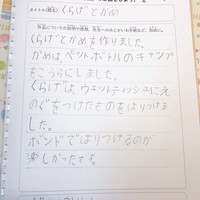 タイトル(題名) くらげとかめ
くらげとかめを作りました。
かめは、ペットボトルのキャップ
をこうらにしました。
くらげは、ウェットティッシュにえ
のぐをつけたものをはりつけま
した。
ボンドではりつけるのが
楽しかったです。